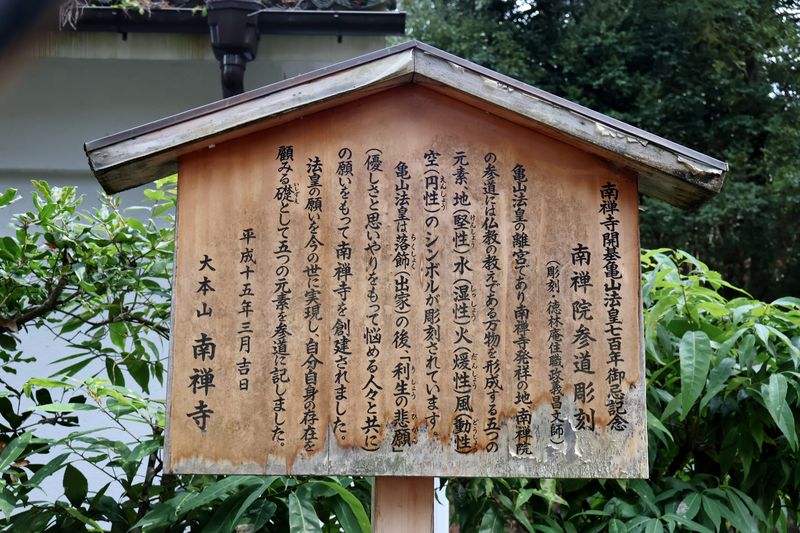 南禅寺開基亀山法皇七百年御忌記念
南禅院参道彫刻
(彫刻・徳林庵住職 政義昌大師)
亀山法皇の離宮であり南禅寺発祥の地、南禅院
の参道には仏教の教えである万物を形成する五つの
元素、地(堅性)水(湿性)火(煖性)風(動性)
空(円性)のシンボルが彫刻されています。
亀山法皇は落飾(出家)の後、「利生の悲願」
(優しさと思いやりをもって悩める人々と共に)
の願いをもって南禅寺を創建されました。
法皇の願いを今の世に実現し、自分自身の存在を
顧みる礎として五つの元素を参道に記しました。
平成十五年三月吉日
大本山 南禅寺